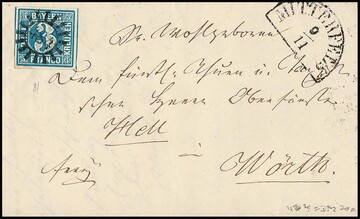 BAYERN
3
KREUZER
FRANCO
MITTERFELS
9
11
Sr. Wohlgeboren
Dem fürstl. Thurn u. Tax
schen Herrn Oberförster
Hell
in
Wörth.